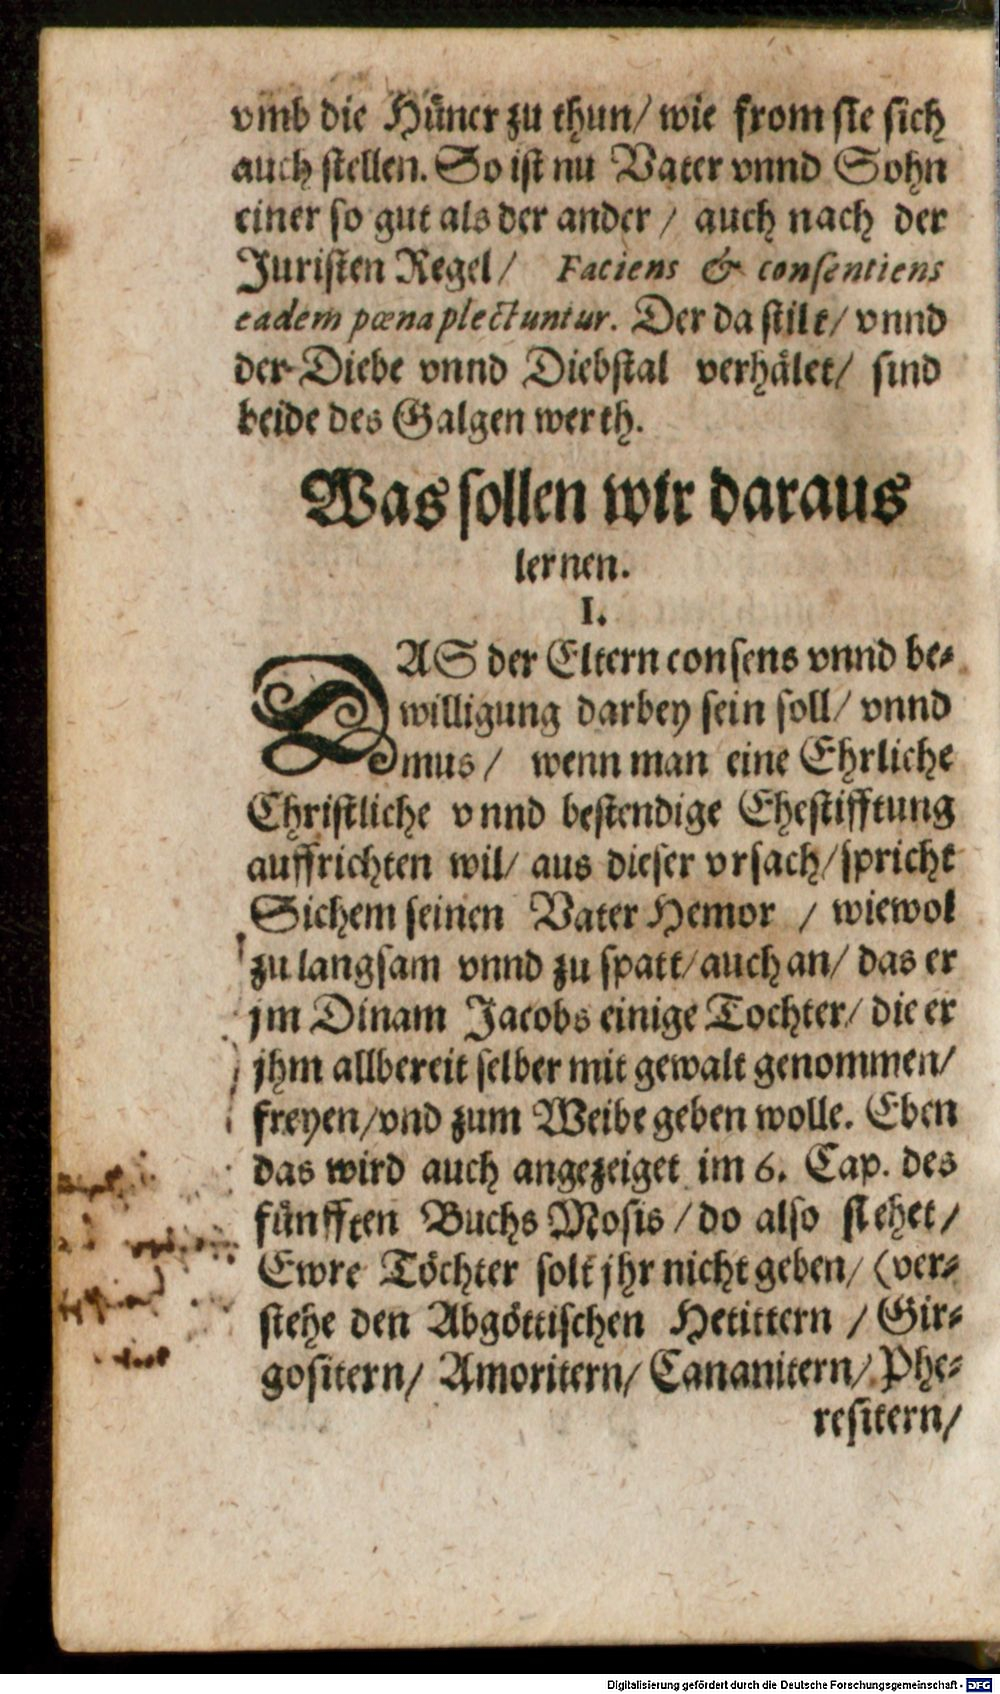 vmb die Hüner zu thun/ wie from sie sich
auch stellen. So ist nu Vater vnnd Sohn
einer so gut als der ander / auch nach der
Juristen Regel/ Faciens & consentiens
eadem pœna plectuntur. Der da stilt/ vnnd
der Diebe vnnd Diebstal verhälet/ sind
beide des Galgen werth.
Was sollen wir daraus
lernen.
I.
DAS der Eltern consens vnnd be-
willigung darbey sein soll/ vnnd
mus/ wenn man eine Ehrliche
Christliche vnnd bestendige Ehestifftung
auffrichten wil/ aus dieser vrsach/ spricht
Sichem seinen Vater Hemor / wiewol
zu langsam vnnd zu spatt/ auch an/ das er
jm Dinam Jacobs einige Tochter/ die er
jhm allbereit selber mit gewalt genommen/
freyen/ vnd zum Weibe geben wolle. Eben
das wird auch angezeiget im 6. Cap. des
fünfften Buchs Mosis / do also stehet/
Ewre Töchter solt jhr nicht geben/ (ver-
stehe den Abgöttischen Hetittern / Gir-
gositern/ Amoritern/ Cananitern/ Phe-
resitern/
Digitalisierung gefördert durch die Deutsche Forschungsgemeinschaft - DFG